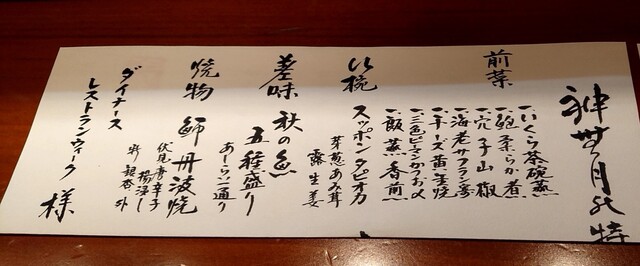 神無月の特
前菜
一、いくら茶碗蒸
一、鮑柔らか煮
一、穴子山椒
一、海老サフラン寿
一、チーズ黄金焼
一、三色ピーマンかつお〆
一、飯蒸 香煎
小椀
スッポン タピオカ
芽葱 あみ茸
露生姜
差味
秋の魚
五種盛り
あしらい 二通り
焼物
鰤 丹波焼
伏見唐辛子
揚浸し
野 銀杏 外
ダイナース
レストランウィーク 様